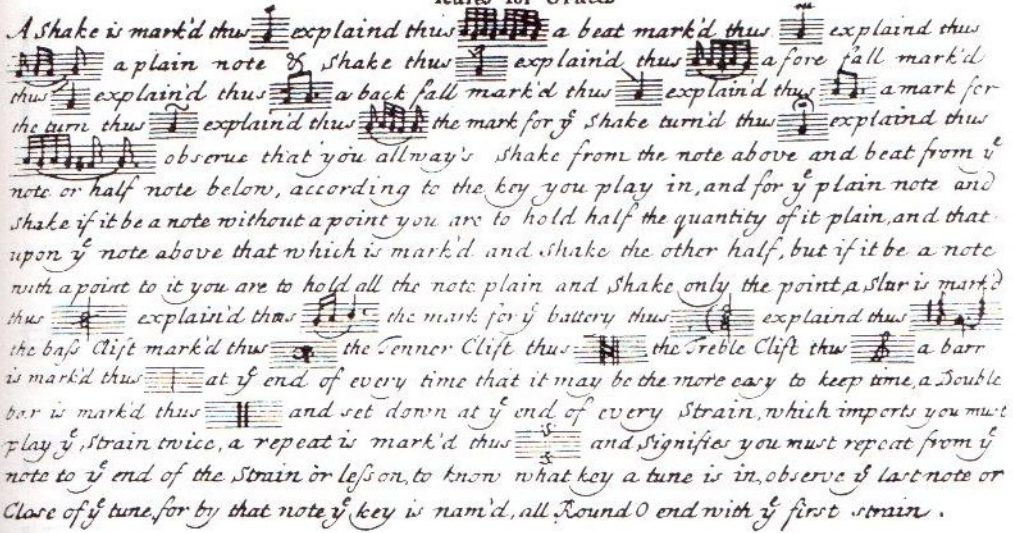 Rules for Graces
A Shake is mark'd thus explaind thus a beat mark'd thus explaind thus
a plain note & shake thus explain'd thus a fore fall mark'd
thus explain'd thus a back fall mark'd thus explain'd thus a mark for
the turn thus explain'd thus the mark for yᵉ shake turn'd thus explain'd thus
observe that you allway's shake from the note above and beat from yᵉ
note or half note below, according to the key you play in, and for yᵉ plain note and
shake if it be a note without a point you are to hold half the quantity of it plain, and that
upon yᵉ note above that which is mark'd and shake the other half, but if it be a note
with a point to it you are to hold all the note plain and shake only the point, a slur is mark'd
thus explain'd thus the mark for yᵉ battery thus explaind thus
the baſs Clift mark'd thus the Tenner Clift thus the Treble Clift thus a barr
is mark'd thus at yᵉ end of every time that it may be the more easy to keep time, a Double
bar is mark'd thus and set down at yᵉ end of every Strain, which imports you must
play yᵉ Strain twice, a repeat is mark'd thus :S: and signifies you must repeat from yᵉ
note to yᵉ end of the Strain or leſson, to know what key a tune is in, observe yᵉ last note or
Close of yᵉ tune, for by that note yᵉ key is nam'd, all Round O end with yᵉ first strain.